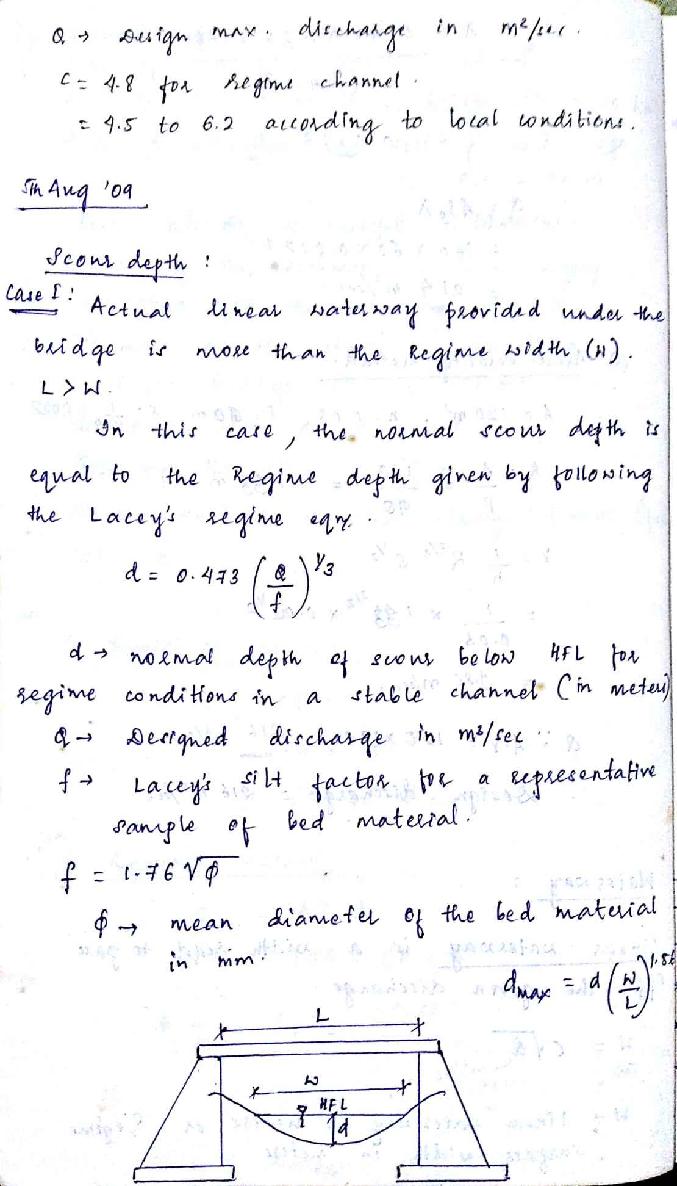 Q → Design max. discharge in m²/sec.
C = 4.8 for regime channel.
= 4.5 to 6.2 according to local conditions.
5th Aug '09
Scour depth :
Case I : Actual linear waterway provided under the
bridge is more than the Regime width (W).
L > W.
In this case, the normal scour depth is
equal to the Regime depth given by following
the Lacey's regime eqn.
d = 0.473 (Q/f)^1/3
d → normal depth of scour below HFL for
regime conditions in a stable channel (in meters)
Q → Designed discharge in m³/sec
f → Lacey's silt factor for a representative
sample of bed material.
f = 1.76 √φ
φ → mean diameter of the bed material
in mm.
dmax = d (W/L)^1.56
L
W
HFL
d